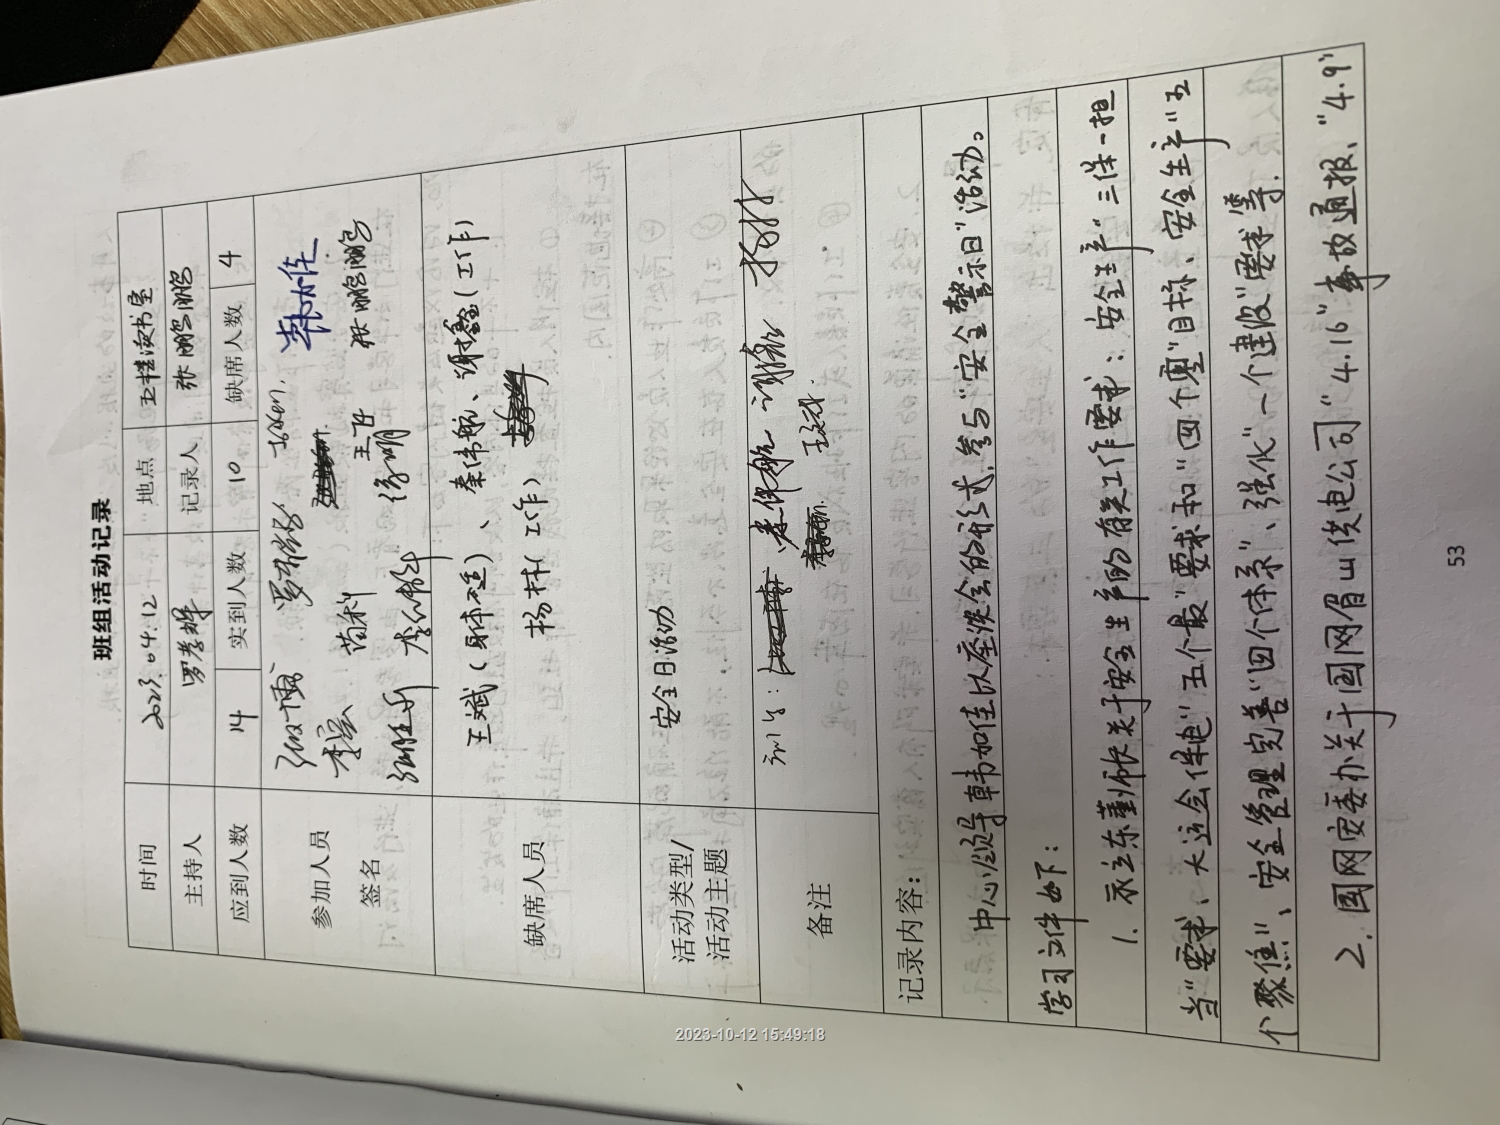 班组活动记录
时间 2023.04.12 地点
主持人 罗孝辉 记录人 张鹏鹏
应到人数 14 实到人数 10 缺席人数 4
参加人员
签名
李云 苟彬 王丹 张鹏鹏
徐明
缺席人员
王斌（身体不适）、秦伟航、谢鑫（工作）
杨林（工作）
活动类型/
活动主题
安全日活动
备注
补学：秦伟航
记录内容：
中心领导韩加佳以座谈会的形式参与“安全警示日”活动。
学习文件如下：
1. 示立东董师长关于安全生产的有关工作要求：安全生产“三保一担
当”要求、大运会保电“五个最”要求和“四个零”目标、安全生产“五
个聚焦”、安全管理完善“四个体系”、强化“一个建设”要求等.
2. 国网安委办关于国网眉山供电公司“4.16”事故通报、“4.9”
53
2023-10-12 15:49:18